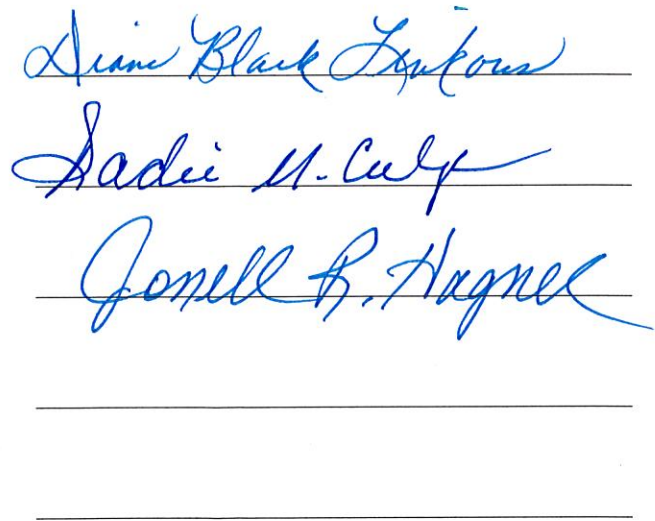 Diane Black Linkous
Sadie M. Culp
Jonell R. Hagner